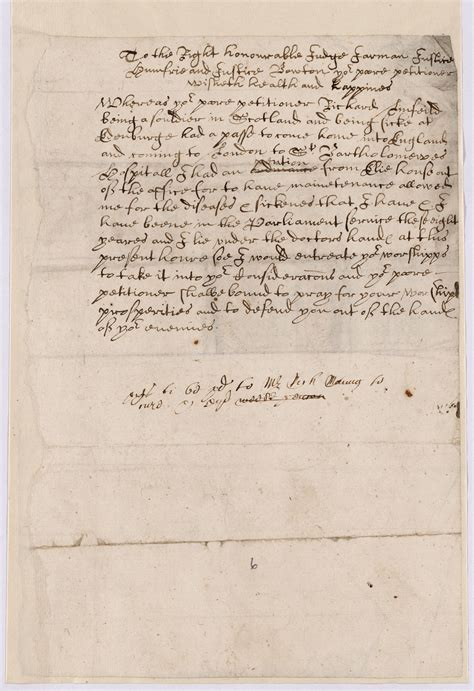 To the Right honourable Judge Jarman Justice
Humfrie and Justice Bowton yor poore petitioner
Wisheth health and happines
Whereas yor poore petitioner Rickard Infeild
being a souldier in Scotland and being sicke at
Edenburge had a passe to come home into England
and coming to London to St Bartholomewes
Hospitall I had an from the house out
of the office for to have maintenance allowed
me for the diseases & sicknes that I have & I
have beene in the Parliament service these eight
yeares and I lie under the doctors hand at this
present houre soe I would entreate yor worshipps
to take it into yor Consideracons and yor poore
petitioner shalbe bound to pray for youre Worshipps
prosperities and to defend you out of the hand
of yor enemies
to Mr
6